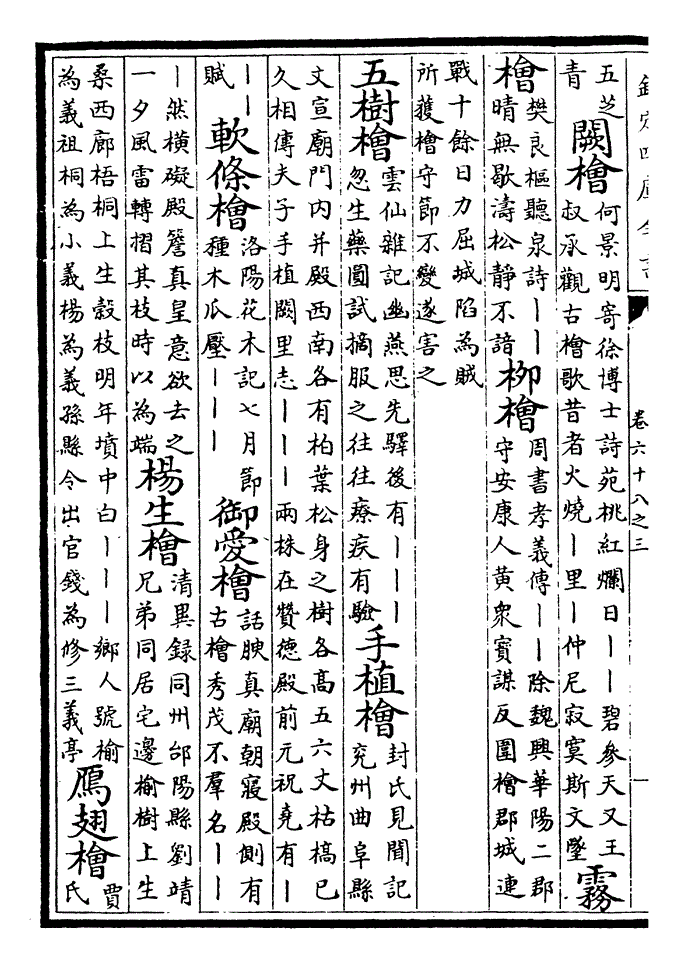 欽定四庫全書 卷六十八之三 一
五芝
青
闕檜
何景明寄徐博士詩苑桃紅爛日丨丨碧參天又王
叔承觀古檜歌昔者火燒丨里丨仲尼寂寞斯文墜
霧
檜
樊良樞聽泉詩丨丨
晴無歇濤松靜不諳
栁檜
周書孝義傳丨丨除魏興華陽二郡
守安康人黄衆寳謀反圍檜郡城連
戰十餘日力屈城陷為賊
所獲檜守節不變遂害之
五樹檜
雲仙雜記幽燕思先驛後有丨丨丨
忽生藥圃試摘服之往往療疾有驗
手植檜
封氏見聞記
兖州曲阜縣
文宣廟門内并殿西南各有柏葉松身之樹各髙五六丈枯槁已
久相傳夫子手植闕里志丨丨丨兩株在贊德殿前元祝堯有丨
丨丨
賦
軟條檜
洛陽花木記七月節
種木瓜壓丨丨丨
御愛檜
話腴真廟朝寢殿側有
古檜秀茂不羣名丨丨
丨然横礙殿簷真皇意欲去之
一夕風雷轉摺其枝時以為端
楊生檜
清異録同州郃陽縣劉靖
兄弟同居宅邊榆樹上生
桑西廊梧桐上生榖枝明年墳中白丨丨丨鄉人號榆
為義祖桐為小義楊為義孫縣令出官錢為修三義亭
鴈翅檜
賈
氏